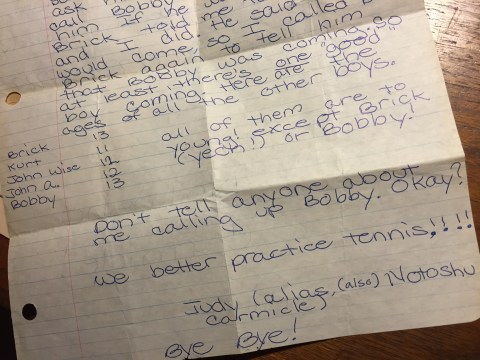 ask him Bobby
him if he
Brick told me
and I did. He said
would come, so I called
Brick again to tell him
that Bobby was coming, so
at least there's one good
boy coming. Here are the
ages of all the other boys.
Brick 13
Kurt 11
John Wise 12
John A. 12
Bobby 13
all of them are to
young! except Brick
(yeah!) or Bobby.
Don't tell anyone about
me calling up Bobby. Okay?
We better practice tennis!!!!
Judy (alias, (also) Notoshu
Carmicle)
Bye Bye!